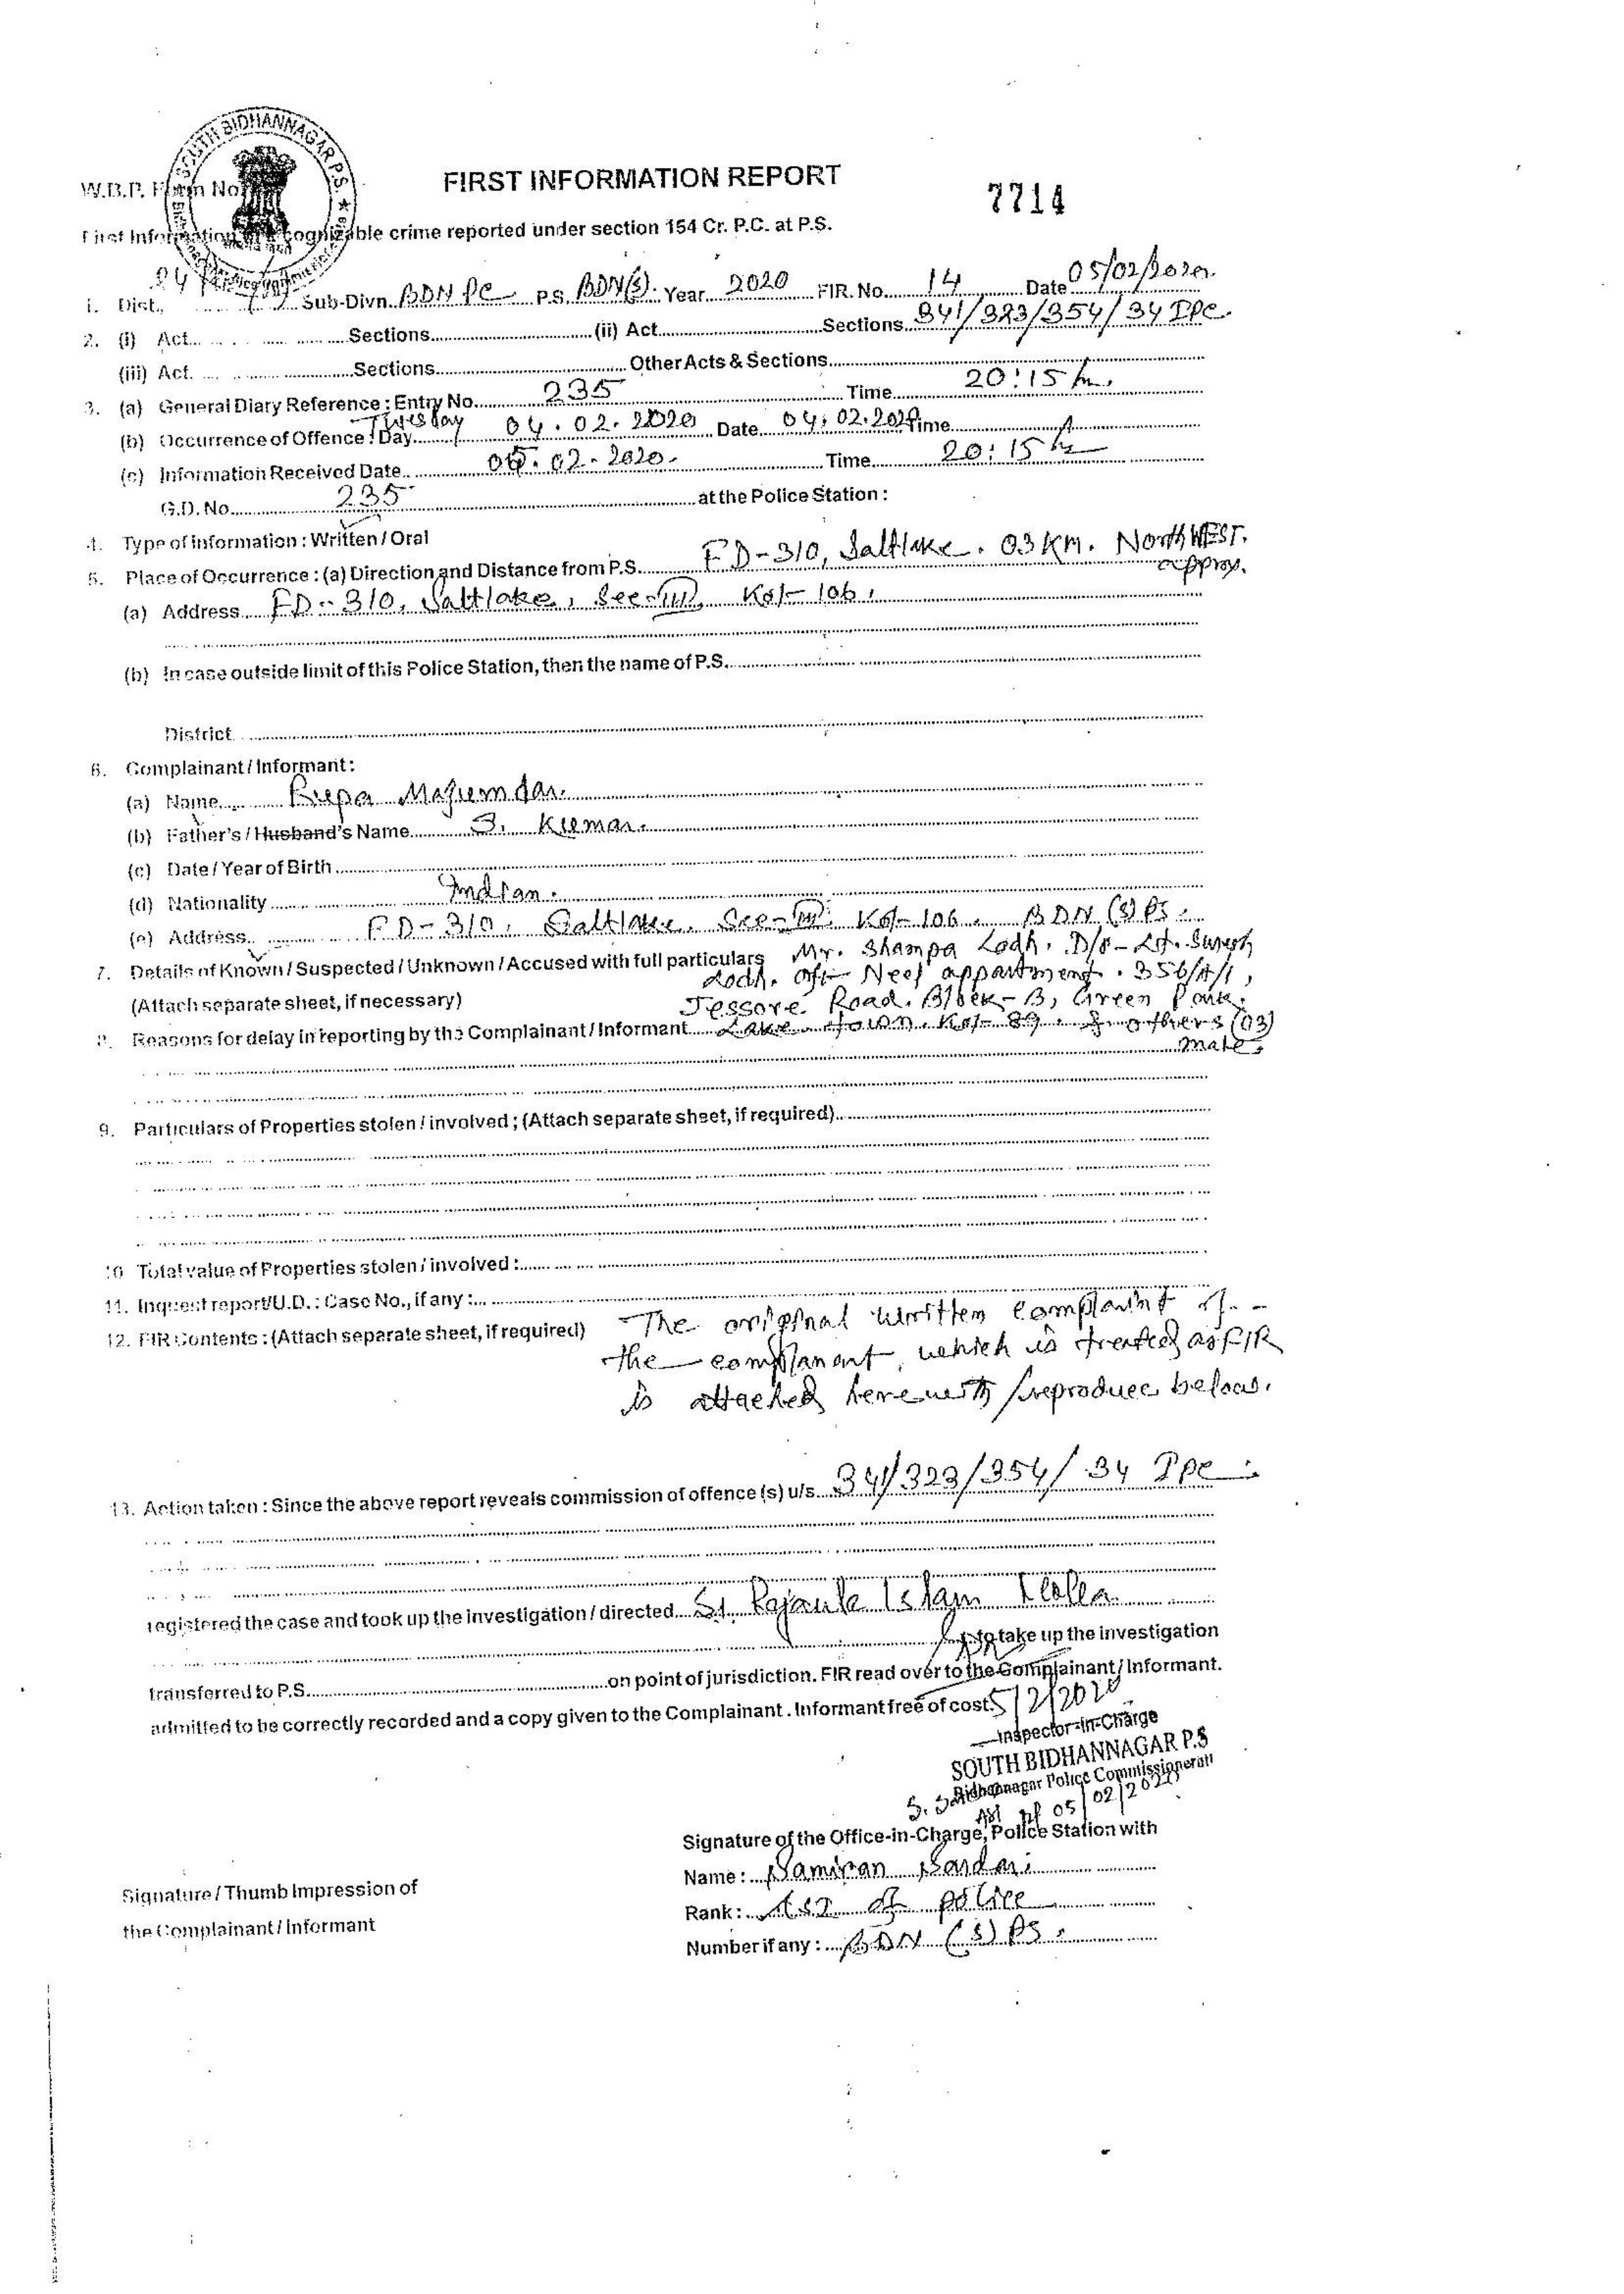 SOUTH BIDHANNAGAR P.S.
W.B.P. Form No
FIRST INFORMATION REPORT
7714
First Information cognizable crime reported under section 154 Cr. P.C. at P.S.
1. Dist., 24 Sub-Divn. BDN PC P.S. BDN(S). Year 2020 FIR. No. 14 Date 05/02/2020.
2. (i) Act Sections (ii) Act Sections 341/323/354/34 IPC.
(iii) Act. Sections Other Acts & Sections
3. (a) General Diary Reference : Entry No. 235 Time 20:15 hr.
(b) Occurrence of Offence : Day Tuesday 04.02.2020 Date 04.02.2020 Time
(c) Information Received Date 05.02.2020. Time 20:15 hr
G.D. No. 235 at the Police Station :
4. Type of information : Written / Oral
5. Place of Occurrence : (a) Direction and Distance from P.S. FD-310, Saltlake. 03 KM. North WEST. approx.
(a) Address FD-310, Saltlake, Sec-III, Kol-106.
(b) In case outside limit of this Police Station, then the name of P.S.
District
6. Complainant / Informant :
(a) Name Rupa Majumdar.
(b) Father's / Husband's Name Kumar.
(c) Date / Year of Birth
(d) Nationality Indian.
(e) Address FD-310, Saltlake, Sec-III, Kol-106. BDN (S) PS.
7. Details of Known / Suspected / Unknown / Accused with full particulars Mr. Shampa Lodh. D/o- Lt. Suresh
Lodh. of- Neel appartment. 356/A/1,
(Attach separate sheet, if necessary) Jessore Road. Block-B, Green Park.
8. Reasons for delay in reporting by the Complainant / Informant Lake town. Kol-89. & others (03)
Male.
9. Particulars of Properties stolen / involved ; (Attach separate sheet, if required)
10 Total value of Properties stolen / involved :
11. Inquest report/U.D. : Case No., if any :
12. FIR Contents : (Attach separate sheet, if required) The original written complaint of -
the complanant which is treated as FIR
is attached herewith / reproduce below.
13. Action taken : Since the above report reveals commission of offence (s) u/s 341/323/354/34 IPC.
registered the case and took up the investigation / directed S.I. Islam
to take up the investigation
transferred to P.S. on point of jurisdiction. FIR read over to the Complainant / Informant.
admitted to be correctly recorded and a copy given to the Complainant . Informant free of cost.
5/2/2020
Inspector-in-Charge
SOUTH BIDHANNAGAR P.S
Bidhannagar Police Commissionerate
ASI of 05/02/2020
Signature of the Office-in-Charge, Police Station with
Name : Samiran Sardar.
Signature / Thumb Impression of
Rank : ASI of police
the Complainant / Informant
Number if any : BDN (S) PS.